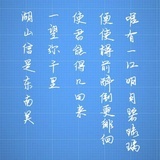 湖山信是东南美
一望弥千里
使君能得几回来
便使樽前醉倒更徘徊
唯有一江明月碧琉璃